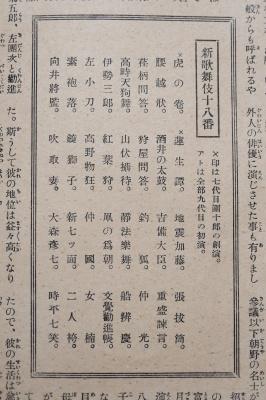 般からも呼ばれるや
外人の俳優に演じさせた事も有りまし
參議以下朝野の名士が
新歌舞伎十八番
×印は七代目團十郎の創演。
アトは全部九代目の初演。
虎の卷。×蓮生譚。地震加藤。張拔筒。
腰越狀。酒井の太鼓。吉備大臣。重盛諫言。
荏柄問答。狩屋問答。釣狐。仲光。
高時天狗舞。山伏攝待。靜法樂舞。船辨慶。
伊勢三郎。紅葉狩。凧の爲朝。文覺勸進帳。
左小刀。高野物狂。仲國。女楠。
素袍落。鏡獅子。新七ツ面。二人袴。
向井將監。吹取妻。大森彦七。時平七笑。
左團次と勸進
た。斯うして彼の地位は益々高くなり
たので、彼の生活は